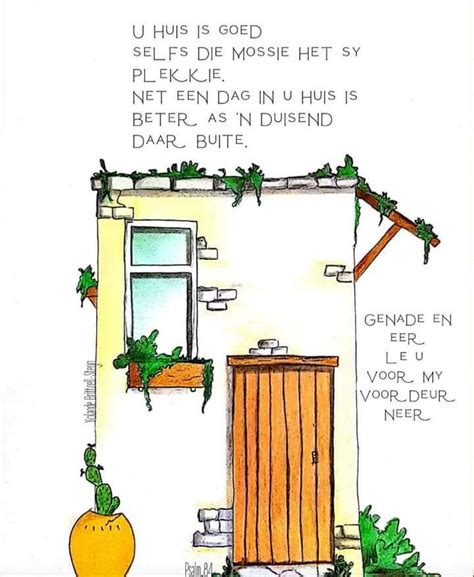 U HUIS IS GOED
SELFS DIE MOSSIE HET SY
PLEKKIE.
NET EEN DAG IN U HUIS IS
BETER AS 'N DUISEND
DAAR BUITE.
GENADE EN
EER
LE U
VOOR MY
VOORDEUR
NEER
Psalm 84